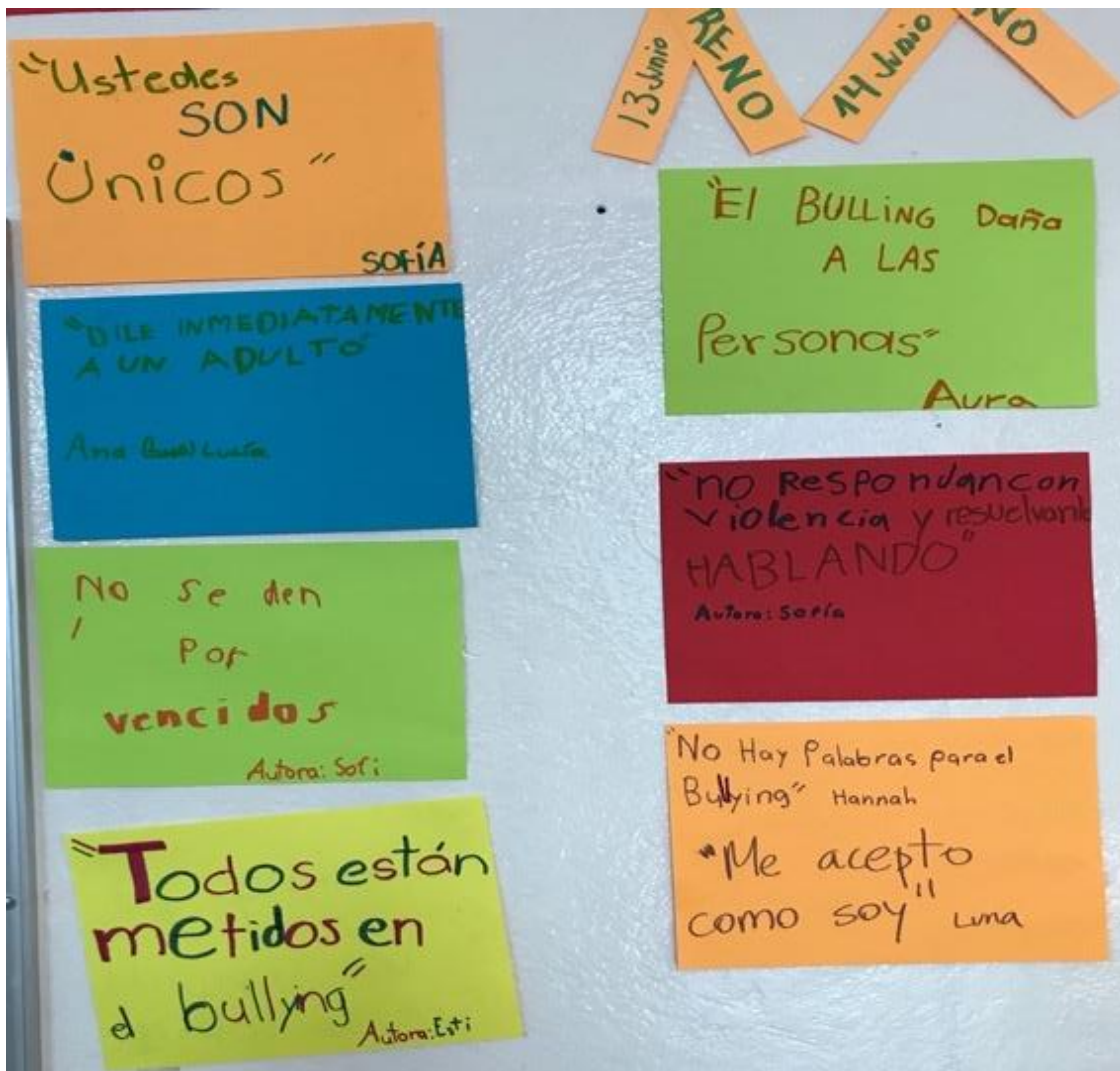 "Ustedes
SON
Únicos"
SOFÍA
"DILE INMEDIATAMENTE
A UN ADULTO"
Ana Lucía
No se den
por
vencidos
Autora: Sofi
"Todos están
metidos en
el bullying"
Autora: Esti
13 Junio
RENO
14 Junio
NO
"El BULLING Daña
A LAS
Personas"
Aura
"no Respondan con
violencia y resuelvanlo
HABLANDO"
Autora: Sofía
"No Hay Palabras para el
Bullying" Hannah
"Me acepto
como soy" Luna